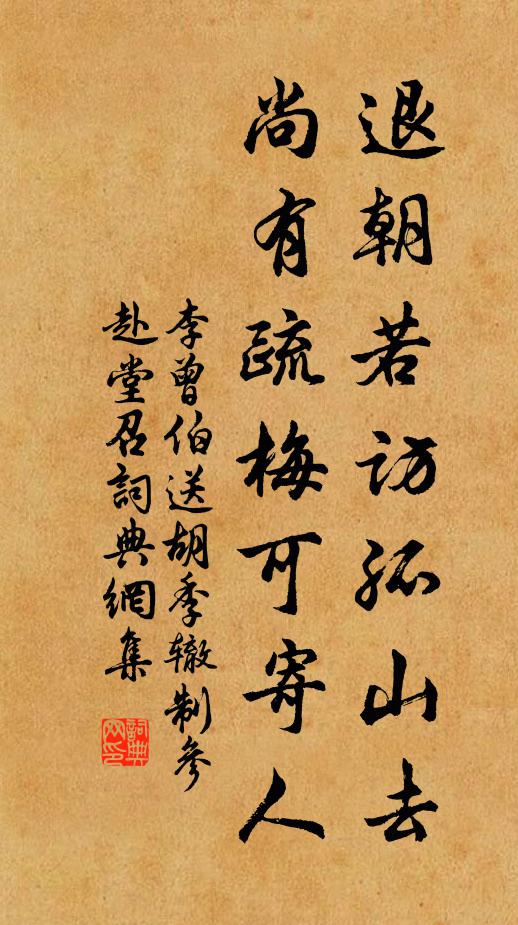 退朝若访孤山去
尚有疏梅可寄人
李曾伯送胡季辙制参
赴堂召詞典網集
詞典网印